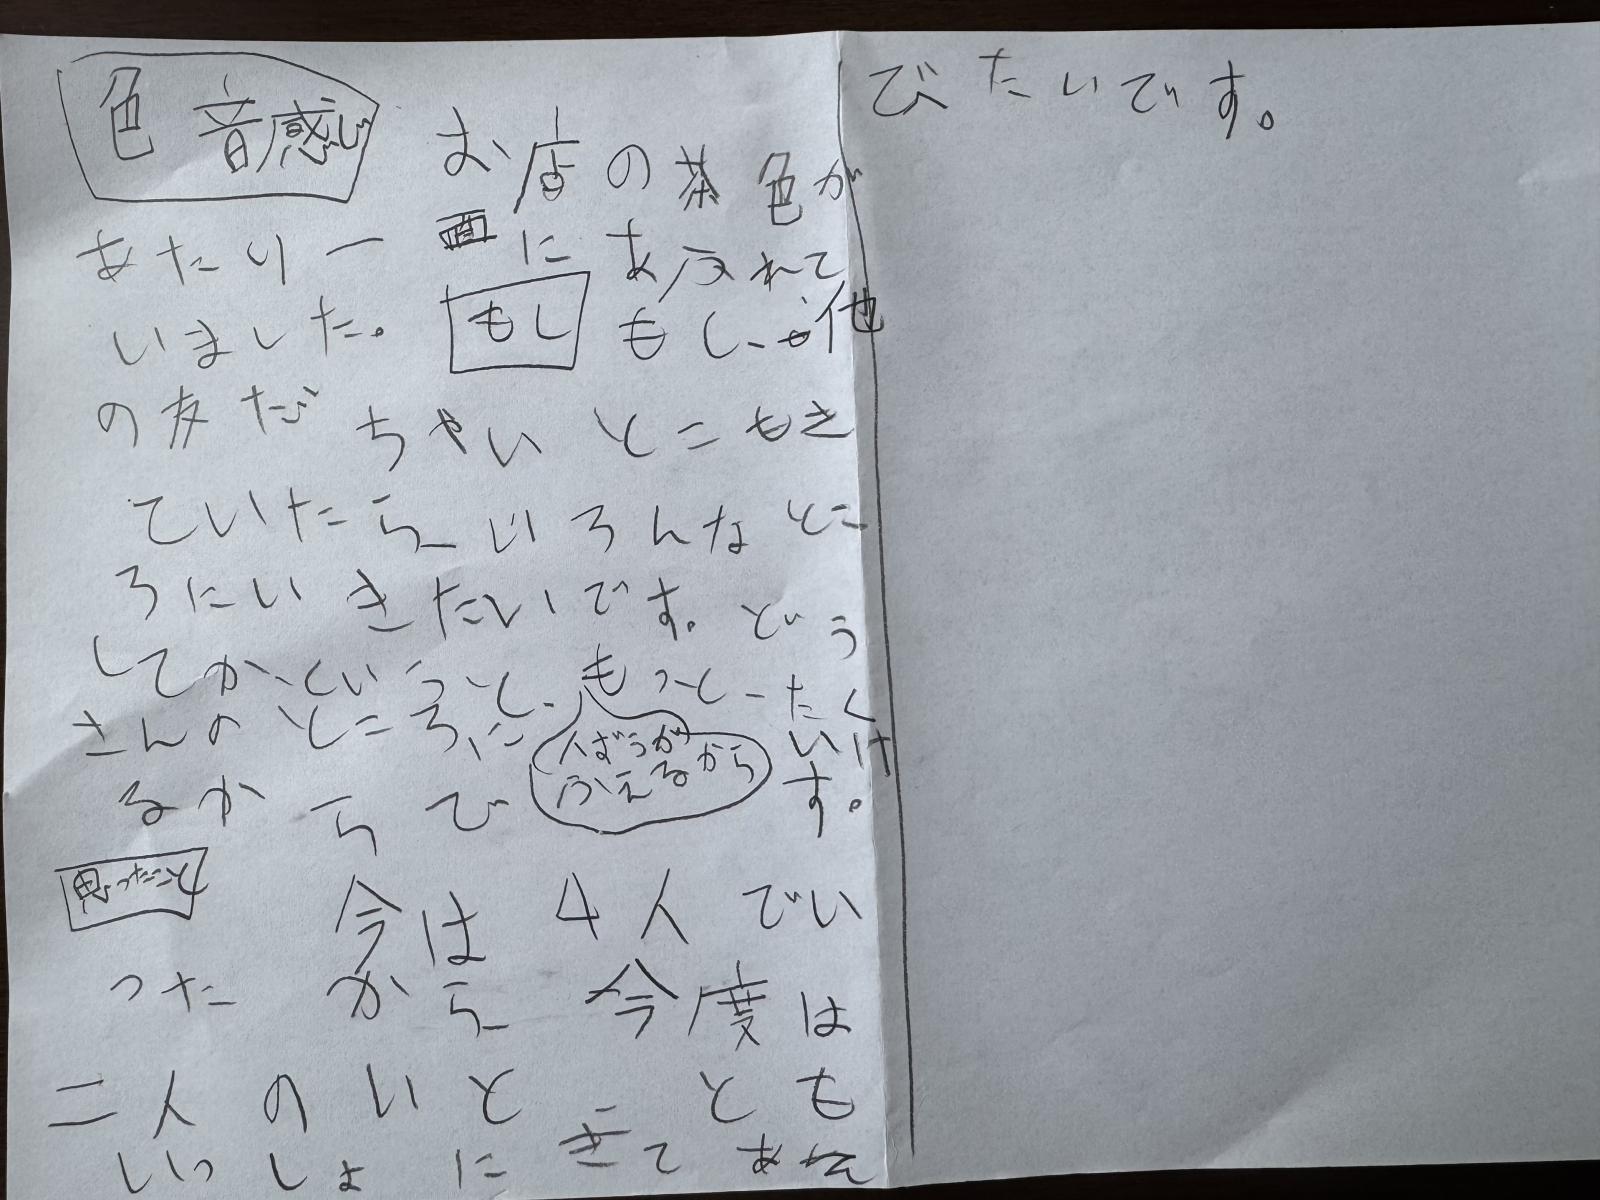 色 音 感じ
お店の茶色が
あたり一面にあふれて
いました。
もし
もし、他
の友だちやいとこもき
ていたら、いろんなとこ
ろにいきたいです。どう
してかというと、もっと、たく
さんのところに
人ばうが
ふえるから
いけ
るからです。
思ったこと
今は4人でい
ったから今度は
二人のいとことも
いっしょにきてあそ
びたいです。